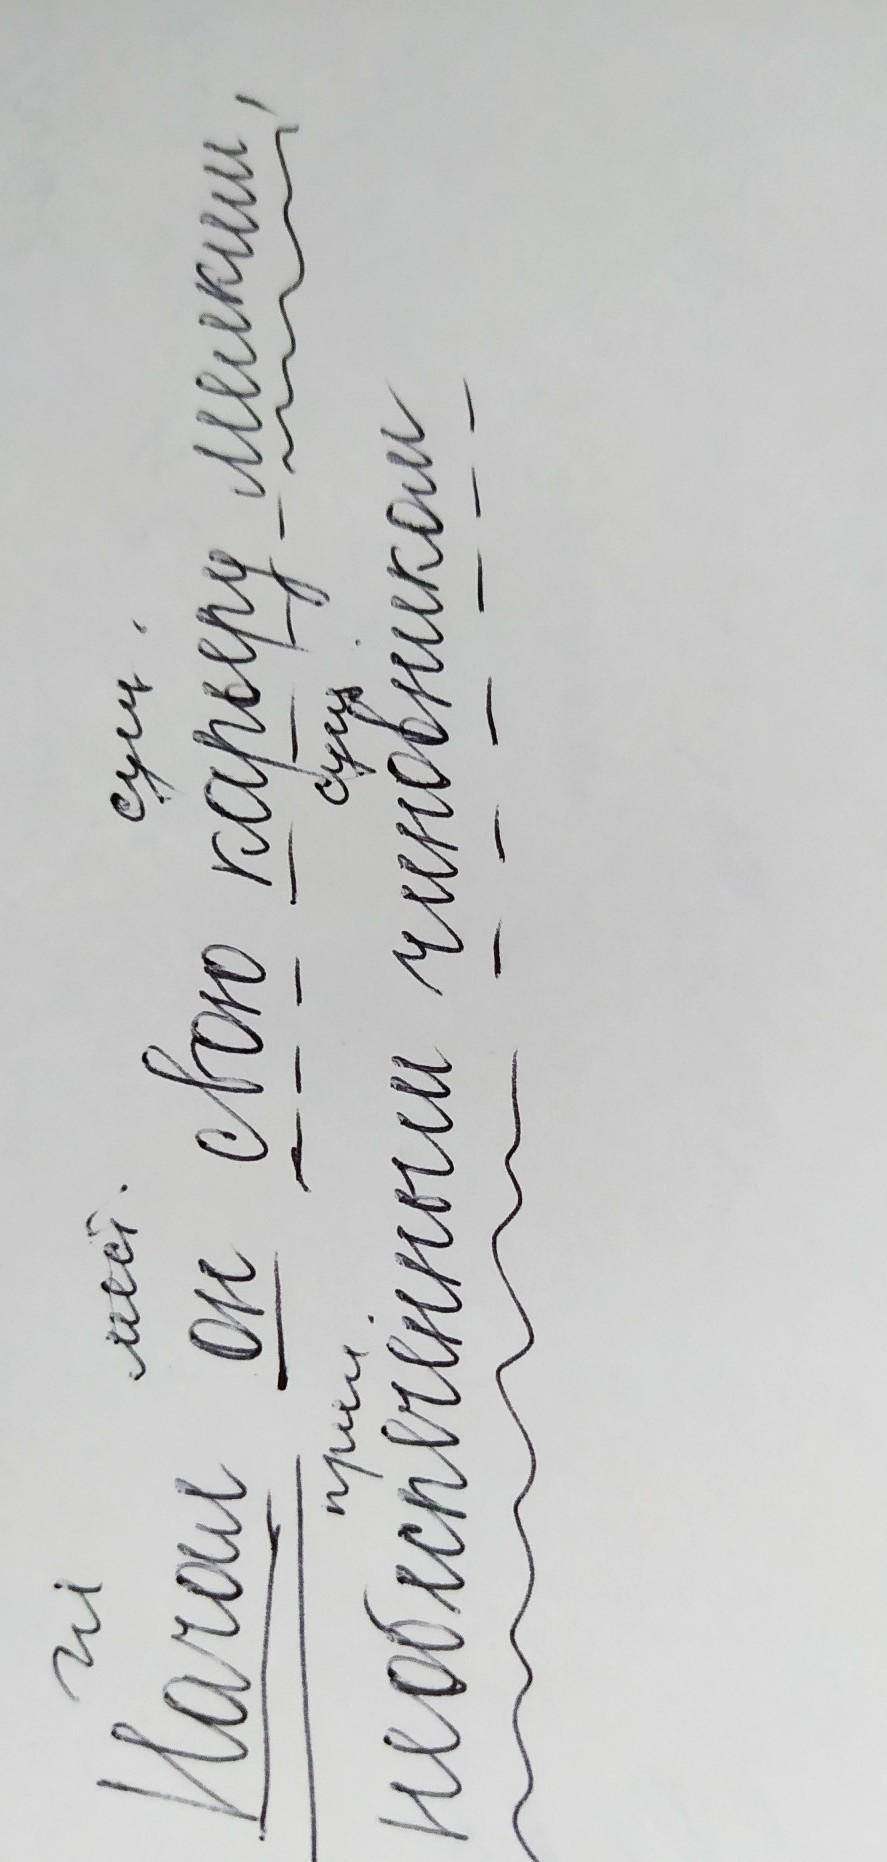 гл мест. сущ.
Начал он свою карьеру мелким,
прил. сущ.
необеспеченным чиновником